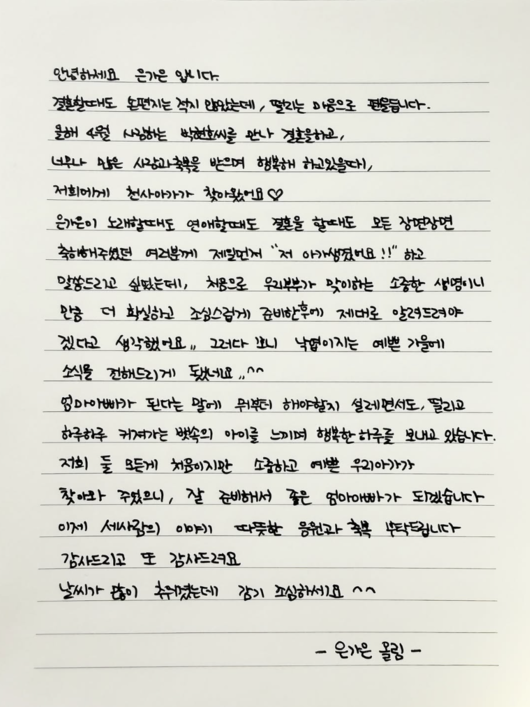 안녕하세요 은가은 입니다.
결혼할때도 손편지는 적지 않았는데, 떨리는 마음으로 펜을듭니다.
올해 4월 사랑하는 박현호씨를 만나 결혼을하고,
너무나 많은 사랑과축복을 받으며 행복해 하고있을때,
저희에게 천사아가가 찾아왔어요♡
은가은이 노래할때도 연애할때도 결혼을 할때도 모든 장면장면
축하해주셨던 여러분께 제일먼저 "저 아가생겼어요!!" 하고
말씀드리고 싶었는데, 처음으로 우리부부가 맞이하는 소중한 생명이니
만큼 더 확실하고 조심스럽게 준비한후에 제대로 알려드려야
겠다고 생각했어요,, 그러다 보니 낙엽이지는 예쁜 가을에
소식을 전해드리게 됐네요,,^^
엄마아빠가 된다는 말에 뭐부터 해야할지 설레면서도, 떨리고
하루하루 커져가는 뱃속의 아이를 느끼며 행복한 하루를 보내고 있습니다.
저희 둘 모든게 처음이지만 소중하고 예쁜 우리아가가
찾아와 주었으니, 잘 준비해서 좋은 엄마아빠가 되겠습니다
이제 세사람의 이야기 따뜻한 응원과 축복 부탁드립니다
감사드리고 또 감사드려요
날씨가 많이 추워졌는데 감기 조심하세요 ^^
- 은가은 올림 -